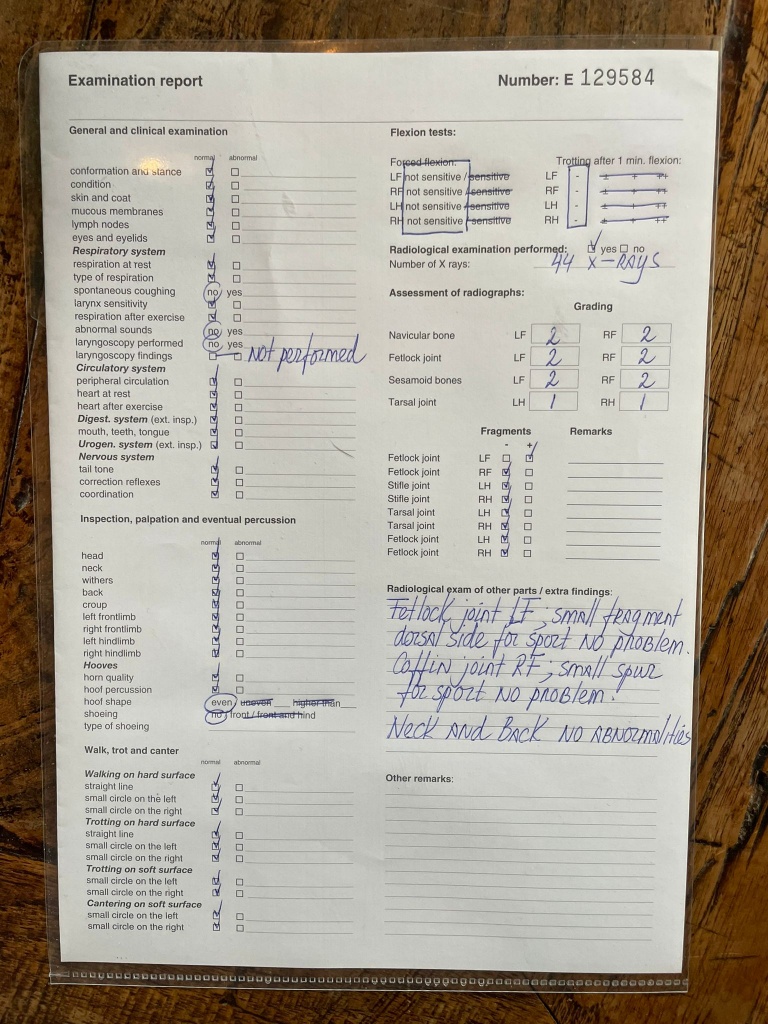 Examination report
Number: E 129584
General and clinical examination
normal abnormal
conformation and stance
condition
skin and coat
mucous membranes
lymph nodes
eyes and eyelids
Respiratory system
respiration at rest
type of respiration
spontaneous coughing no yes
larynx sensitivity
respiration after exercise
abnormal sounds no yes
laryngoscopy performed no yes
laryngoscopy findings Not performed
Circulatory system
peripheral circulation
heart at rest
heart after exercise
Digest. system (ext. insp.)
mouth, teeth, tongue
Urogen. system (ext. insp.)
Nervous system
tail tone
correction reflexes
coordination
Inspection, palpation and eventual percussion
normal abnormal
head
neck
withers
back
croup
left frontlimb
right frontlimb
left hindlimb
right hindlimb
Hooves
horn quality
hoof percussion
hoof shape even / uneven ___ higher than
shoeing no / front / front and hind
type of shoeing
Walk, trot and canter
normal abnormal
Walking on hard surface
straight line
small circle on the left
small circle on the right
Trotting on hard surface
straight line
small circle on the left
small circle on the right
Trotting on soft surface
small circle on the left
small circle on the right
Cantering on soft surface
small circle on the left
small circle on the right
Flexion tests:
Forced flexion: Trotting after 1 min. flexion:
LF not sensitive / sensitive LF - ± + ++
RF not sensitive / sensitive RF - ± + ++
LH not sensitive / sensitive LH - ± + ++
RH not sensitive / sensitive RH - ± + ++
Radiological examination performed: yes no
Number of X rays: 44 X-RAYS
Assessment of radiographs:
Grading
Navicular bone LF 2 RF 2
Fetlock joint LF 2 RF 2
Sesamoid bones LF 2 RF 2
Tarsal joint LH 1 RH 1
Fragments Remarks
- +
Fetlock joint LF
Fetlock joint RF
Stifle joint LH
Stifle joint RH
Tarsal joint LH
Tarsal joint RH
Fetlock joint LH
Fetlock joint RH
Radiological exam of other parts / extra findings:
Fetlock joint LF; small fragment
dorsal side for sport NO problem.
Coffin joint RF; small spur
for sport NO problem.
Neck AND Back NO ABNORMALITIES
Other remarks: